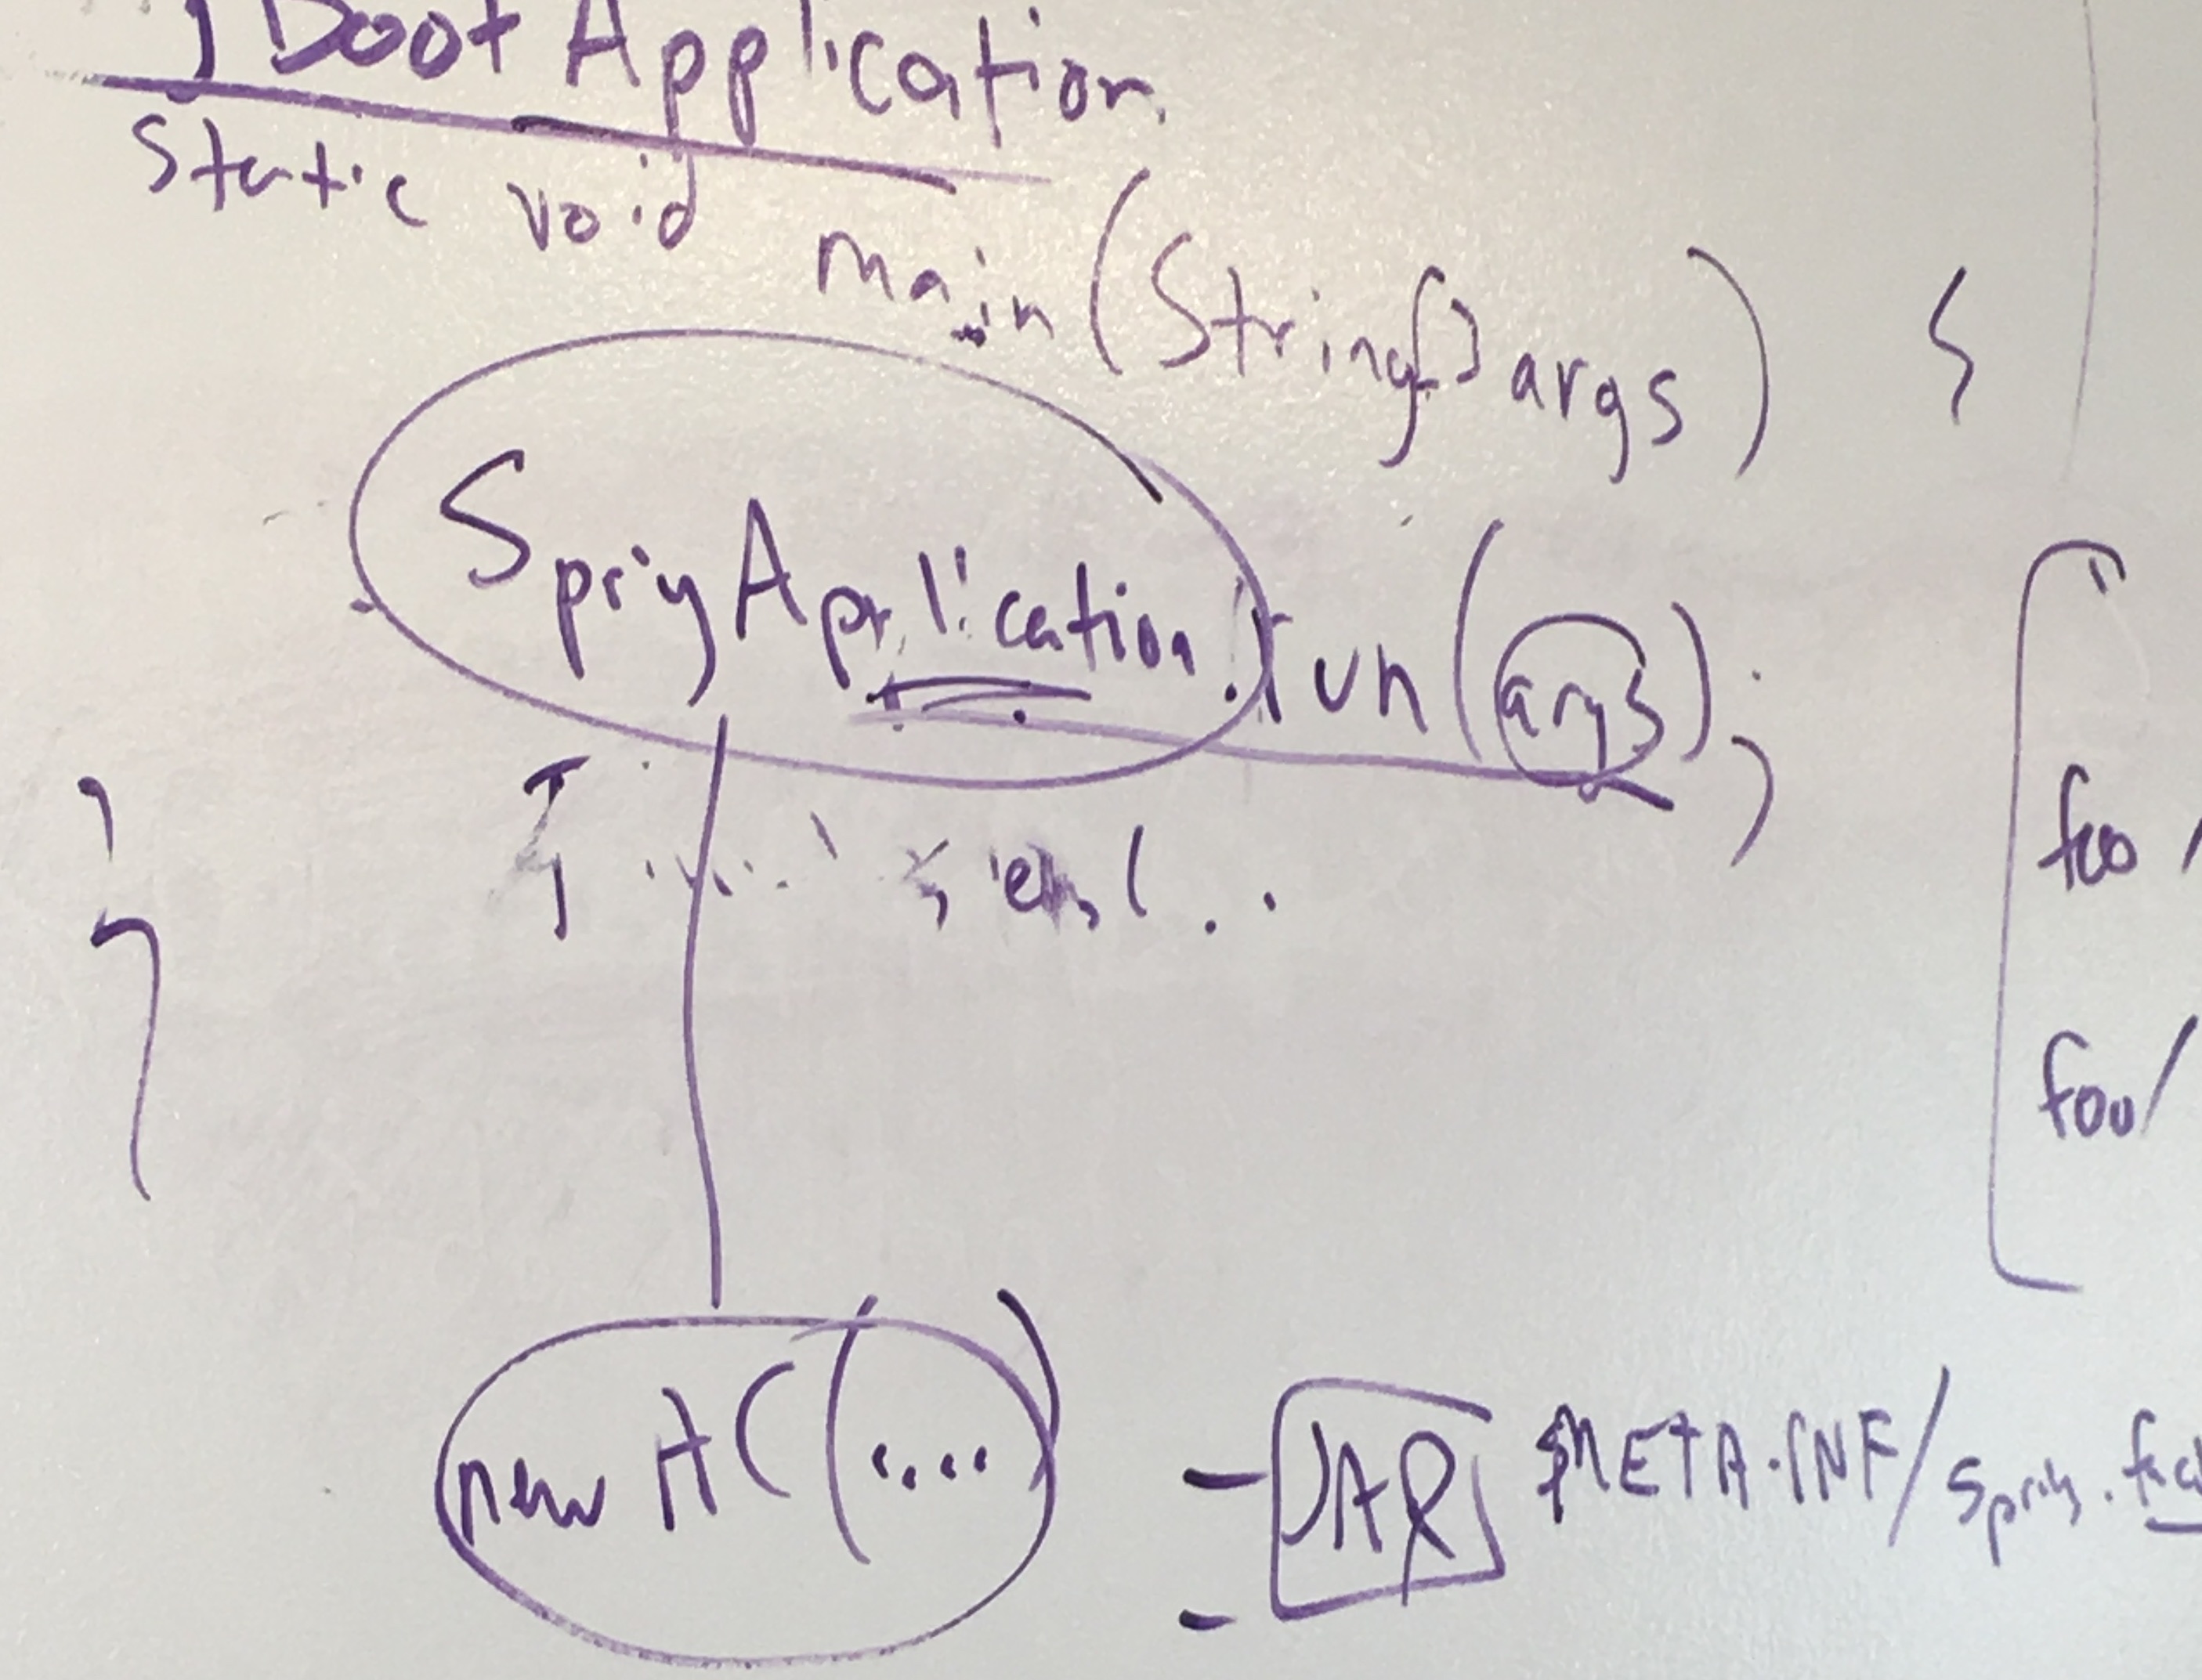 Boot Application
static void main(String[] args) {
SpringApplication.run(args);
}
foo/
foo/
new AC(....)
- JAR META-INF/spring.fac
-